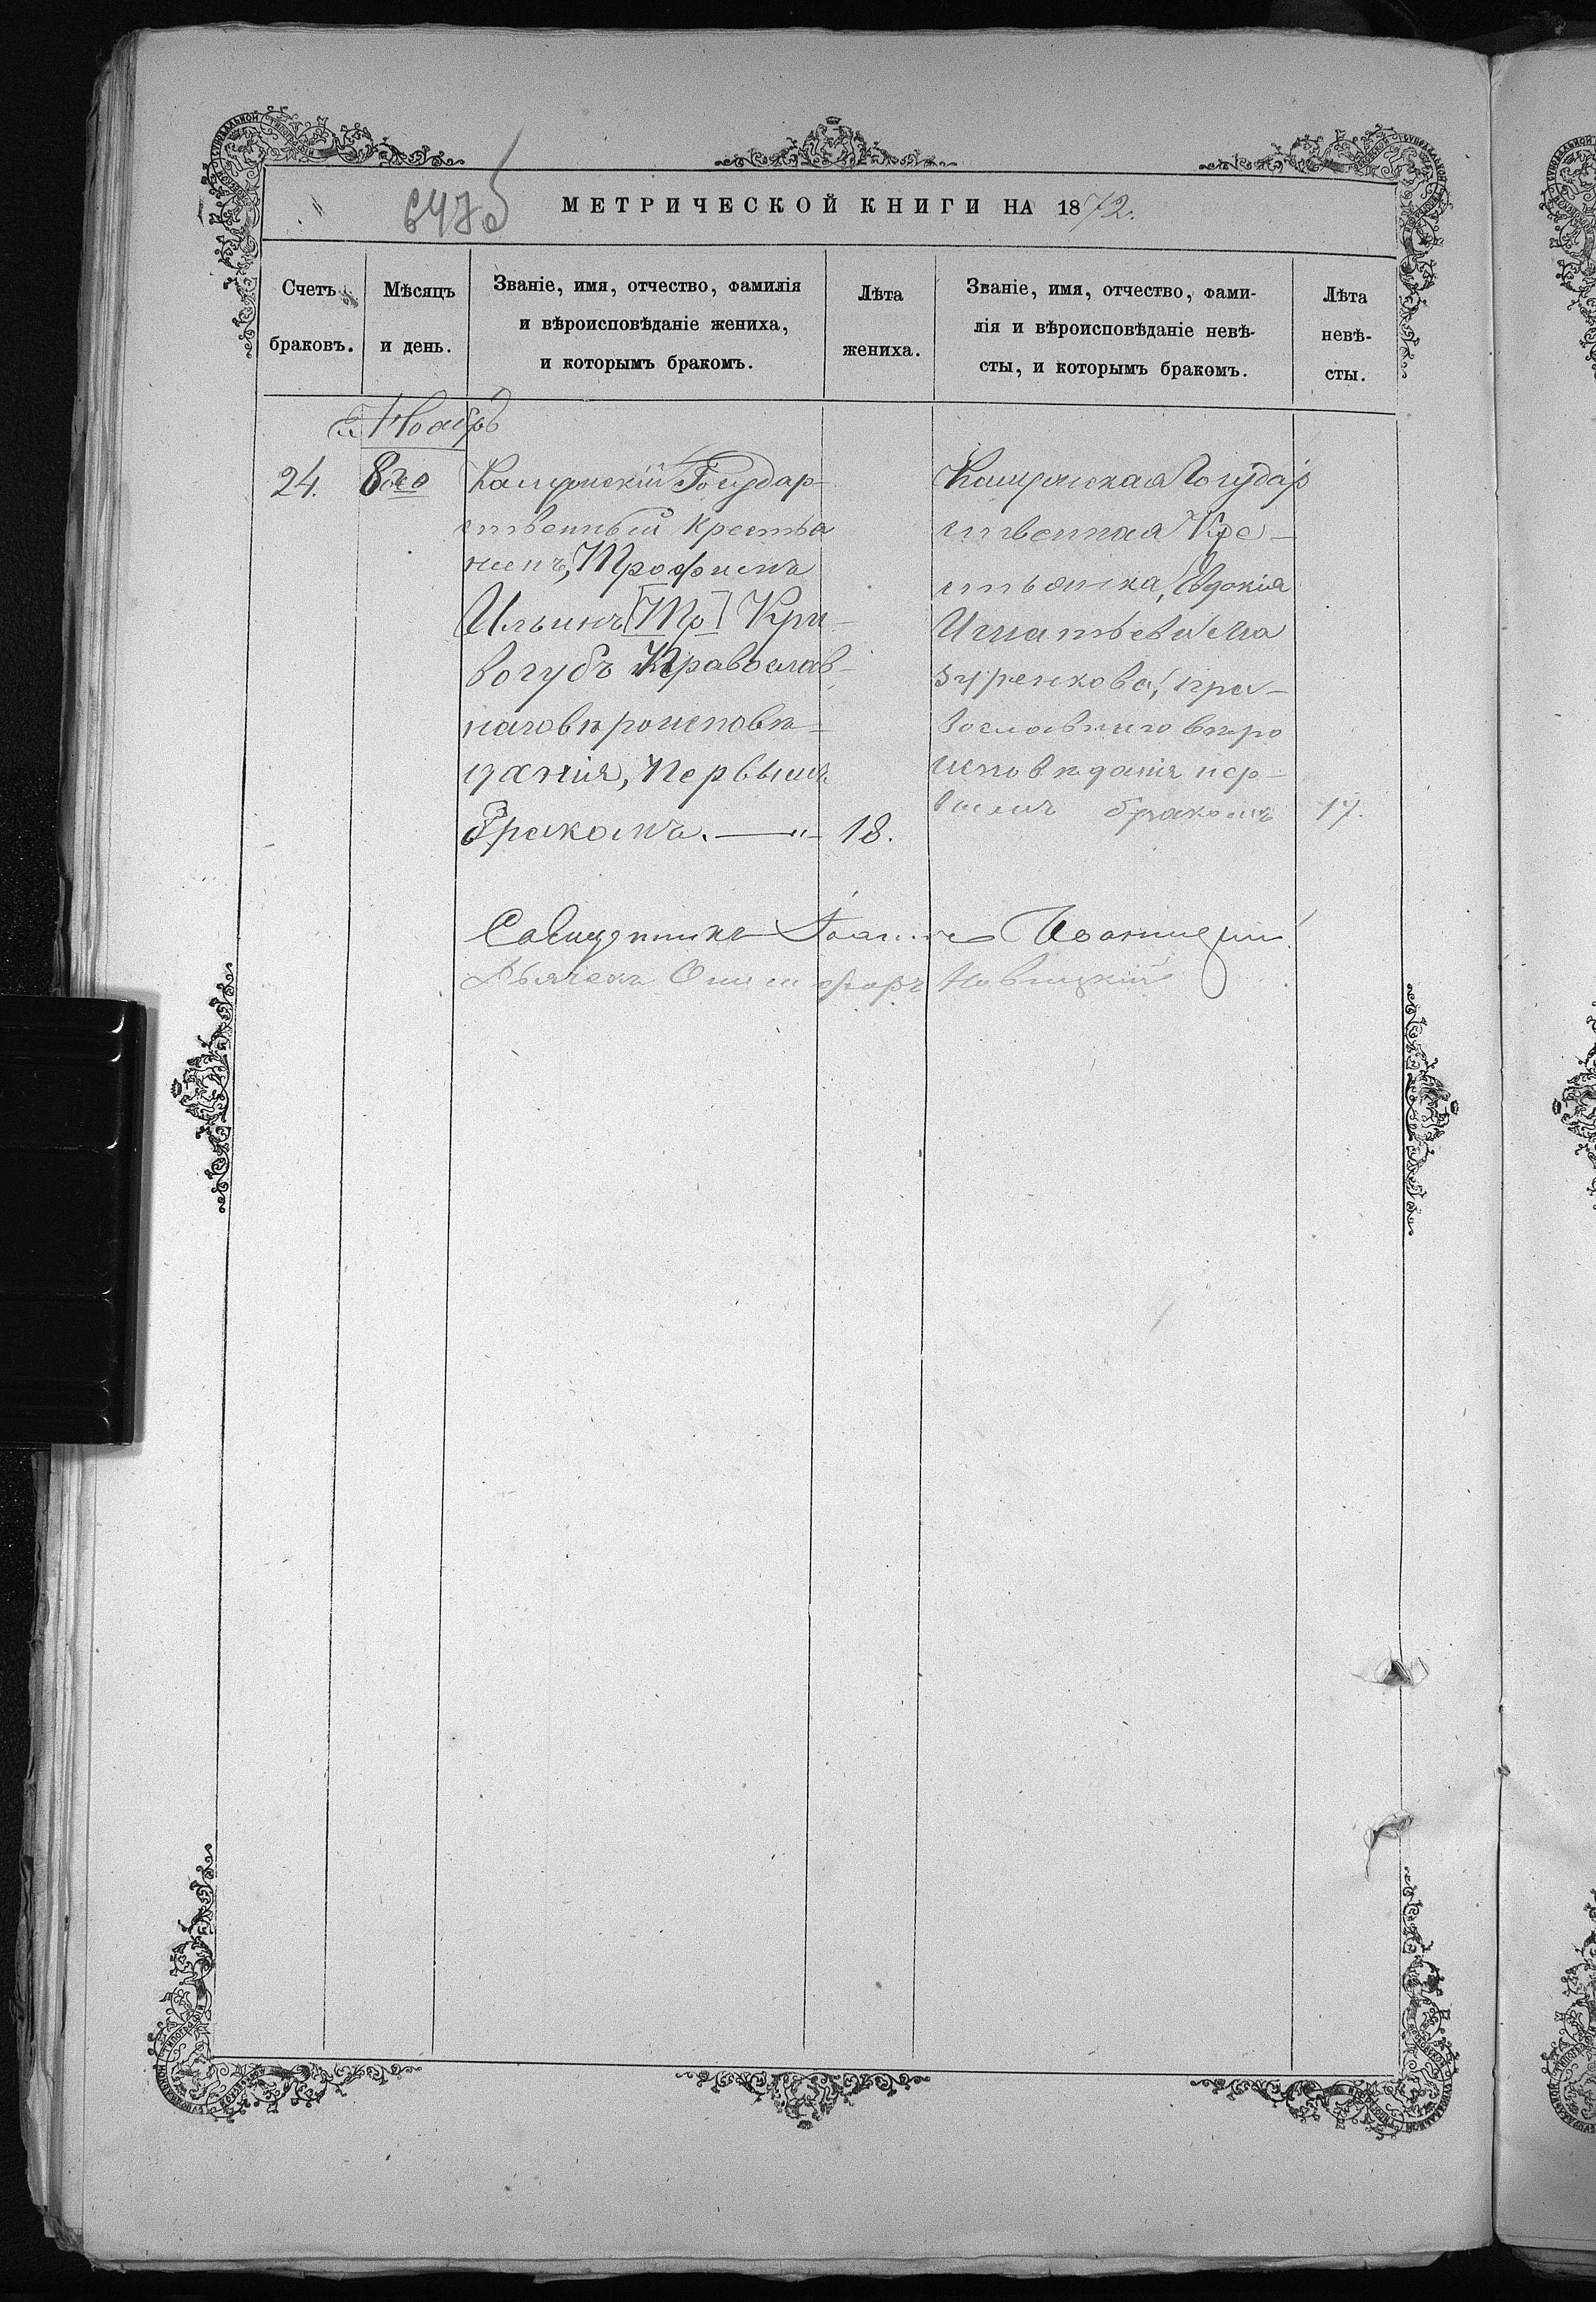 647 об
МЕТРИЧЕСКОЙ КНИГИ НА 1872.
Счетъ браковъ.
Мѣсяцъ и день.
Званіе, имя, отчество, фамилія
и вѣроисповѣданіе жениха,
и которымъ бракомъ.
Лѣта жениха.
Званіе, имя, отчество, фами-
лія и вѣроисповѣданіе невѣ-
сты, и которымъ бракомъ.
Лѣта невѣ-
сты.
Ноябрь
24. 8го
Государ-
ственный крестья
нинъ, Трофимъ
Ильинъ [Тр] Кри-
вогубъ Православ-
наго вѣроисповѣ-
данія, Первымъ
Бракомъ. — " — 18.
Государ
ственная Кре-
стьянка, Евдокія
Игнатьева Ма
зуренкова, пра-
вославнаго вѣро
исповѣданія пер-
вымъ бракомъ 17.
Священникъ Іоаннъ
Дьячекъ Онисифоръ Новицкій